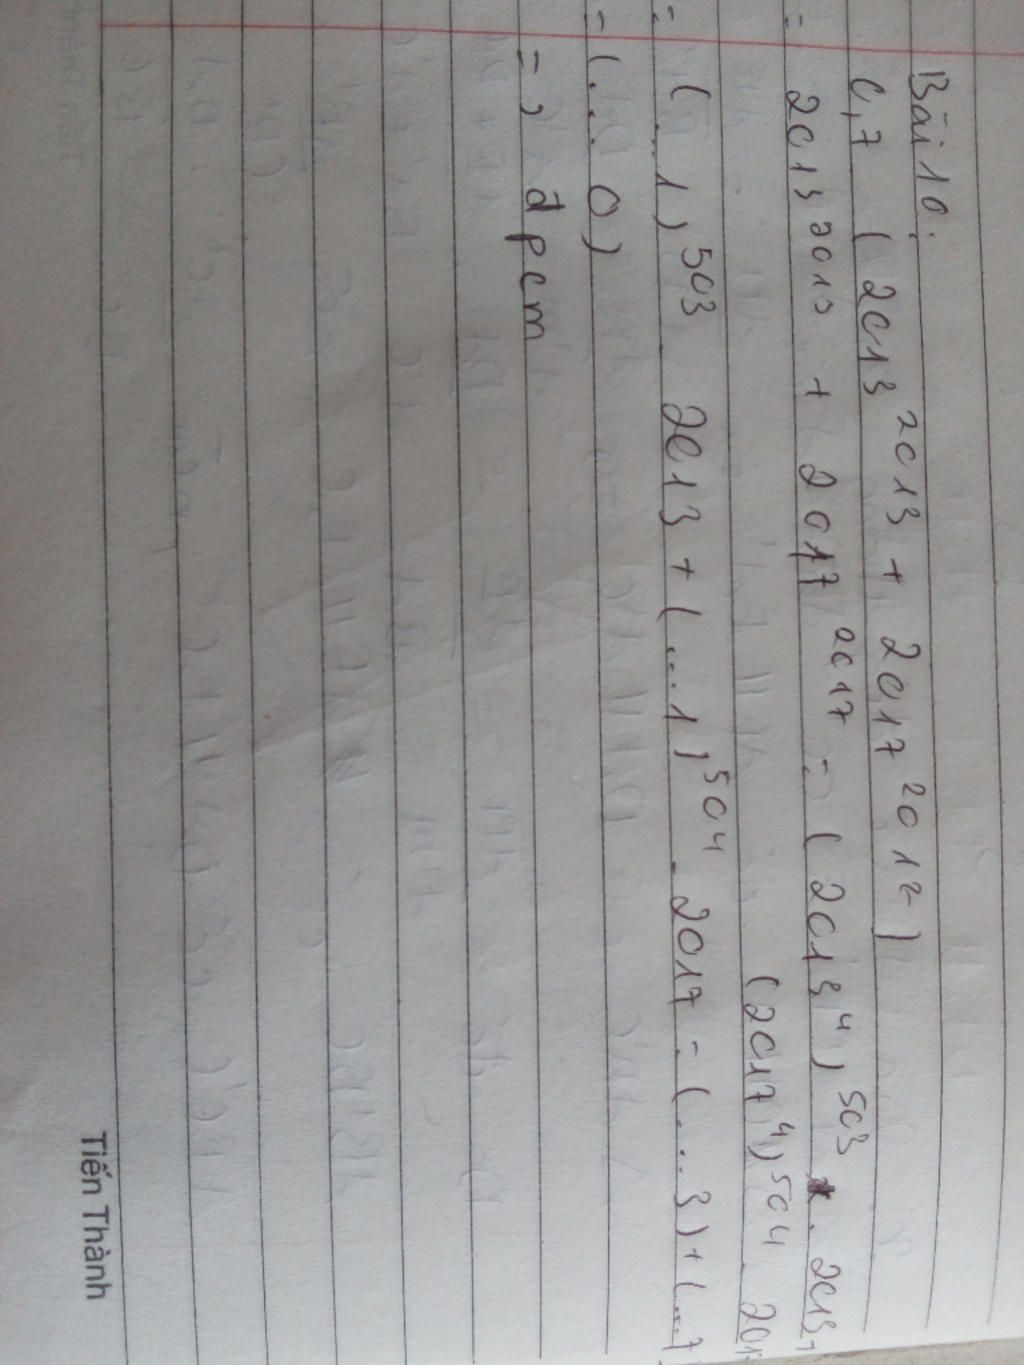 Bài 10:
c, 7 ( 2013^2013 + 2017^2017 )
= 2013^2013 + 2017^2017 = (2013^4)^503 . 2013 +
(2017^4)^504 . 201
= (...1)^503 . 2013 + (...1)^504 . 2017 = (...3) + (...7
= (...0)
=> đpcm
Tiến Thành